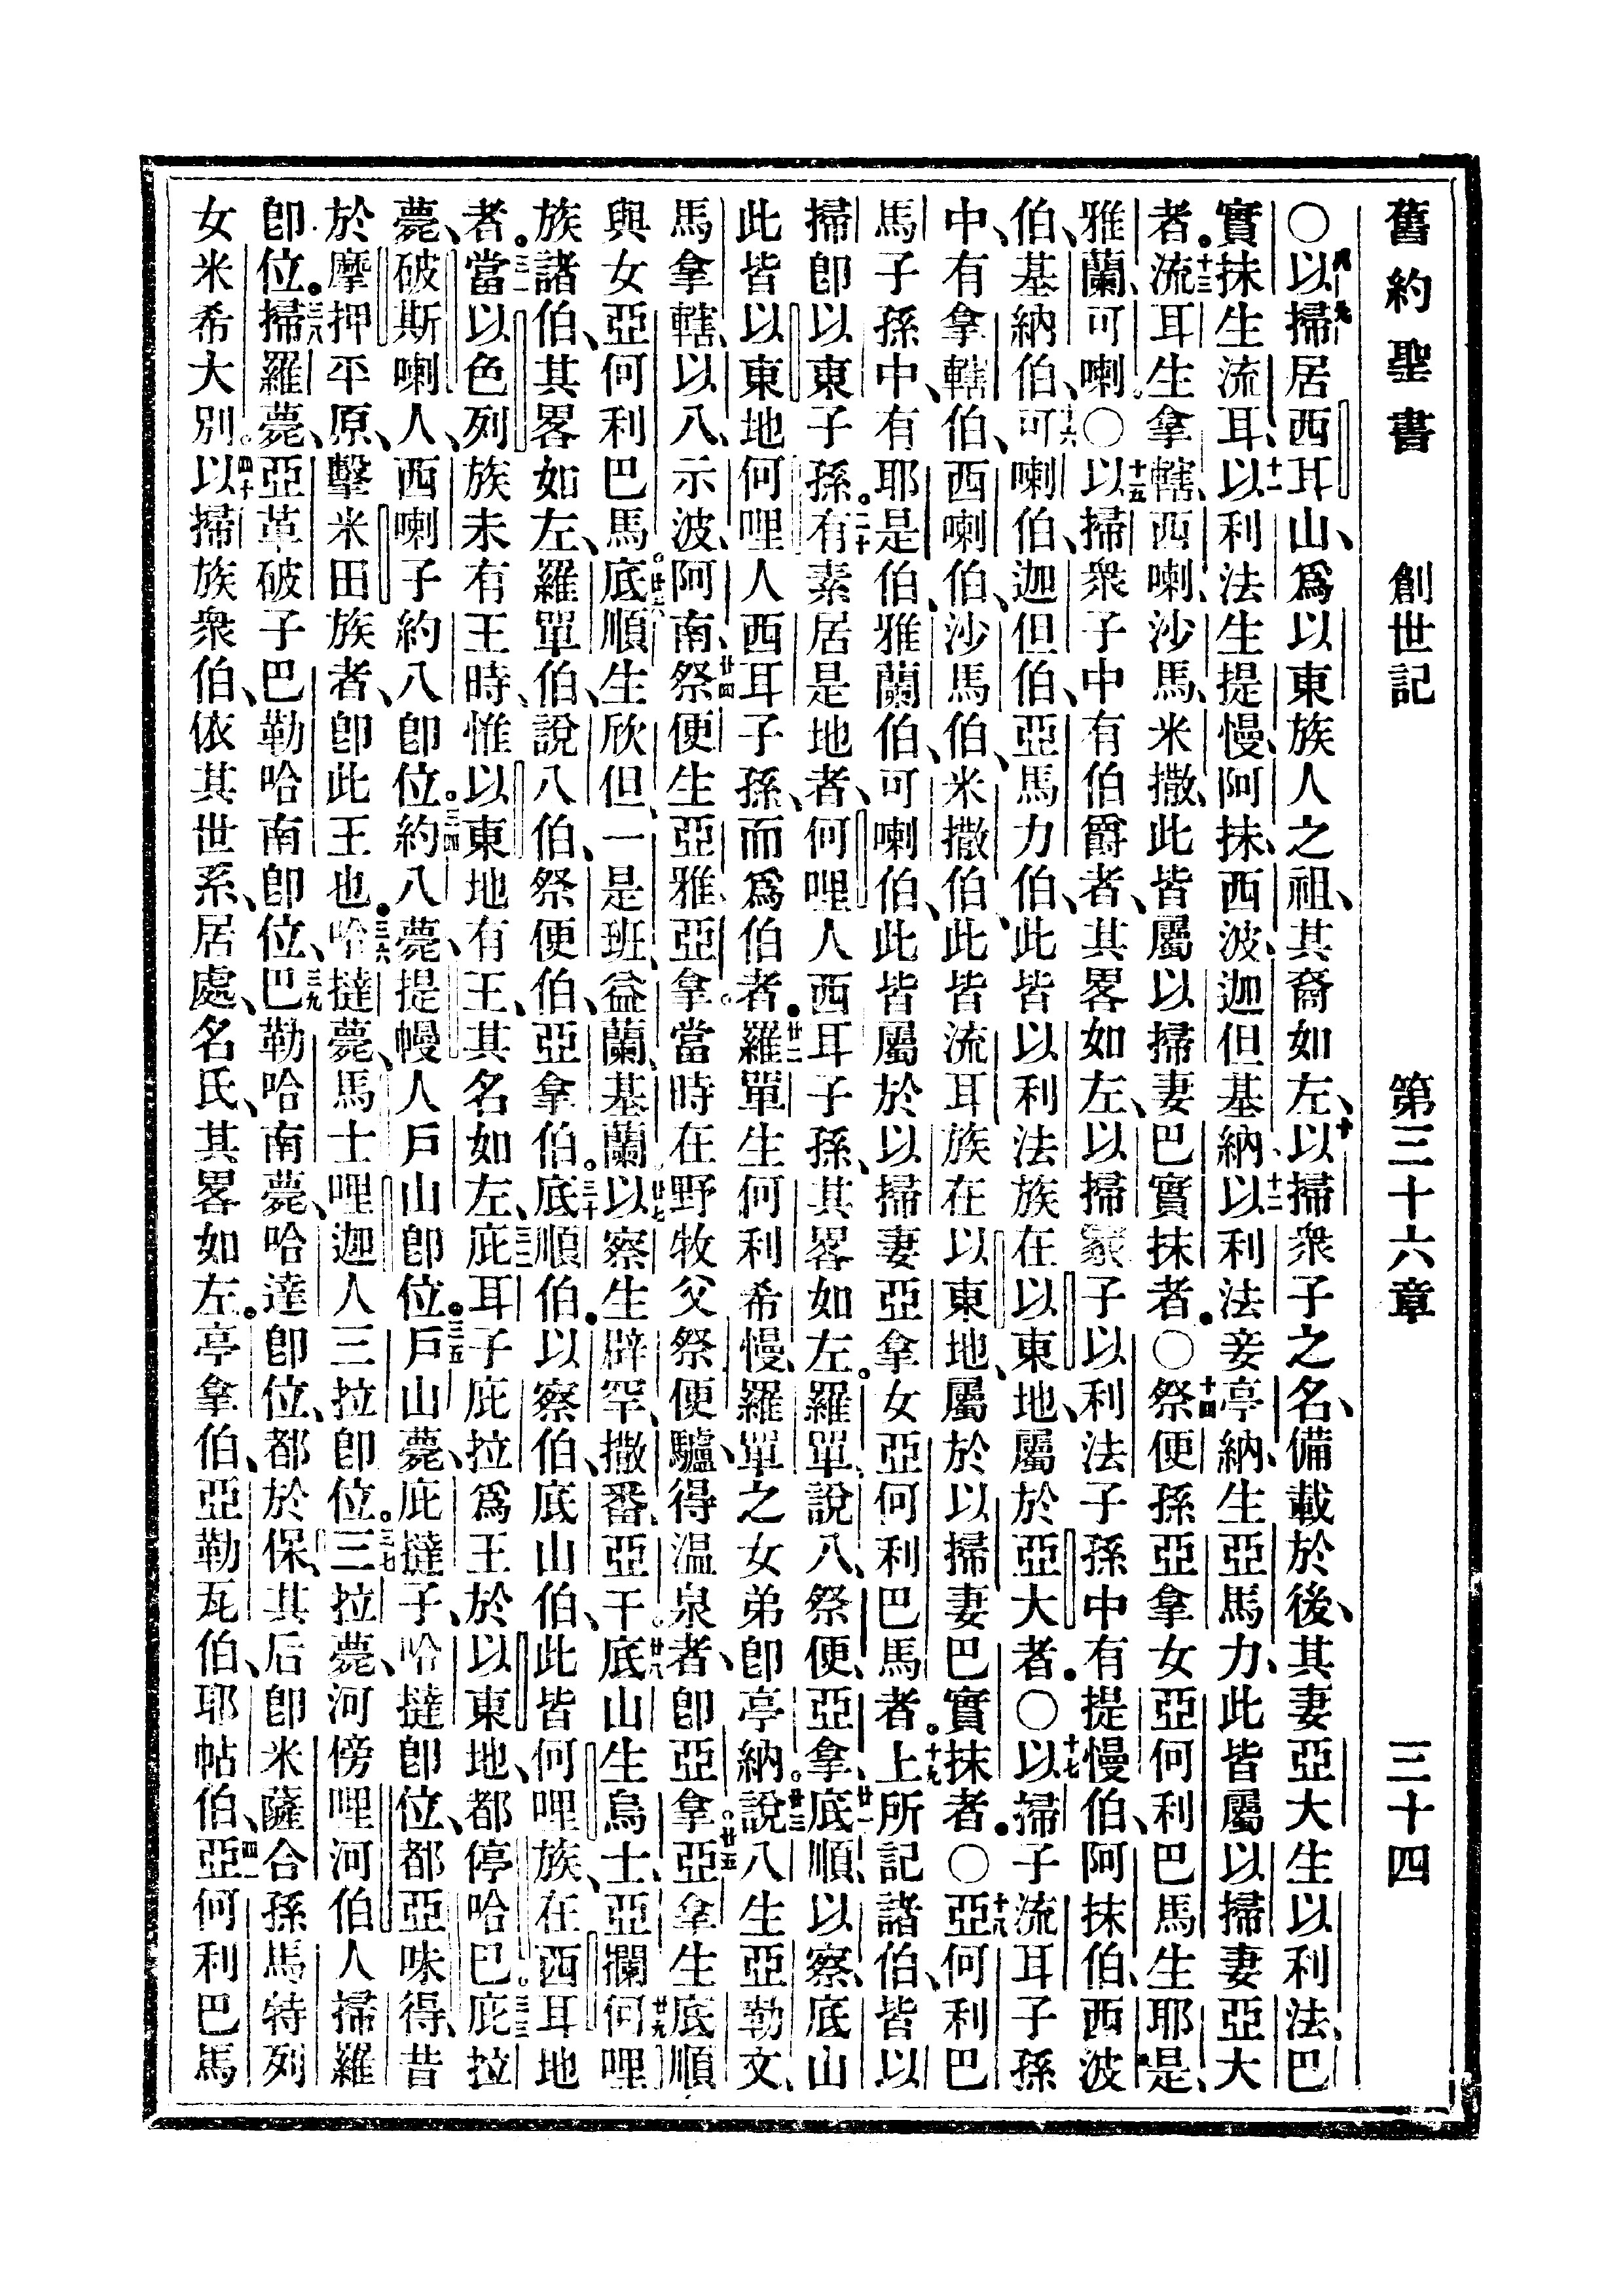 舊約聖書 創世記 第三十六章 三十四
〇以掃居西耳山、爲以東族人之祖、其裔如左、十以掃衆子之名、備載於後、其妻亞大生以利法、巴
實抹生流耳、十一以利法生提慢、阿抹、西波、迦但、基納、十二以利法妾亭納、生亞馬力、此皆屬以掃妻亞大
者。十三流耳生拿轄、西喇、沙馬、米撒、此皆屬以掃妻巴實抹者。〇十四祭便孫亞拿女亞何利巴馬生耶是、
雅蘭、可喇。〇十五以掃衆子中有伯爵者、其畧如左、以掃冢子以利法子孫中有提慢伯、阿抹伯、西波
伯、基納伯、十六可喇伯、迦但伯、亞馬力伯、此皆以利法族在以東地、屬於亞大者。〇十七以掃子流耳子孫
中、有拿轄伯、西喇伯、沙馬伯、米撒伯、此皆流耳族在以東地、屬於以掃妻巴實抹者。〇十八亞何利巴
馬子孫中、有耶是伯、雅蘭伯、可喇伯、此皆屬於以掃妻亞拿女亞何利巴馬者。十九上所記諸伯、皆以
掃卽以東子孫。二十有素居是地者、何哩人西耳子孫、其畧如左。羅單、說八、祭便、亞拿、廿一底順、以察、底山
此皆以東地何哩人西耳子孫、而爲伯者。廿二羅單生何利希慢、羅單之女弟卽亭納。廿三說八生亞勒文、
馬拿轄、以八、示波、阿南、廿四祭便生亞雅、亞拿。當時在野牧父祭便驢、得温泉者、卽亞拿。廿五亞拿生底順
與女亞何利巴馬。廿六底順生欣但、一是班、益蘭、基蘭、廿七以察生辟罕、撒番、亞干。廿八底山生烏士、亞攔、廿九何哩
族諸伯、其畧如左、羅單伯、說八伯、祭便伯、亞拿伯。三十底順伯。以察伯、底山伯、此皆何哩族、在西耳地
者。三一當以色列族未有王時、惟以東地有王、其名如左、三二庇耳子庇拉爲王於以東地、都停哈巴。三三庇拉
薨、破斯喇人、西喇子約八卽位。三四約八薨、提幔人戶山卽位。三五戶山薨、庇撻子、哈撻卽位、都亞味得、昔
於摩押平原、擊米田族者、卽此王也。三六哈撻薨、馬士哩迦人三拉卽位。三七三拉薨、河傍哩河伯人掃羅
卽位。三八掃羅薨、亞革破子巴勒哈南卽位、三九巴勒哈南薨、哈達卽位、都於保、其后卽米薩合孫馬特列
女米希大別。四十以掃族衆伯、依其世系、居處、名氏、其畧如左。亭拿伯、亞勒瓦伯、耶帖伯、四一亞何利巴馬